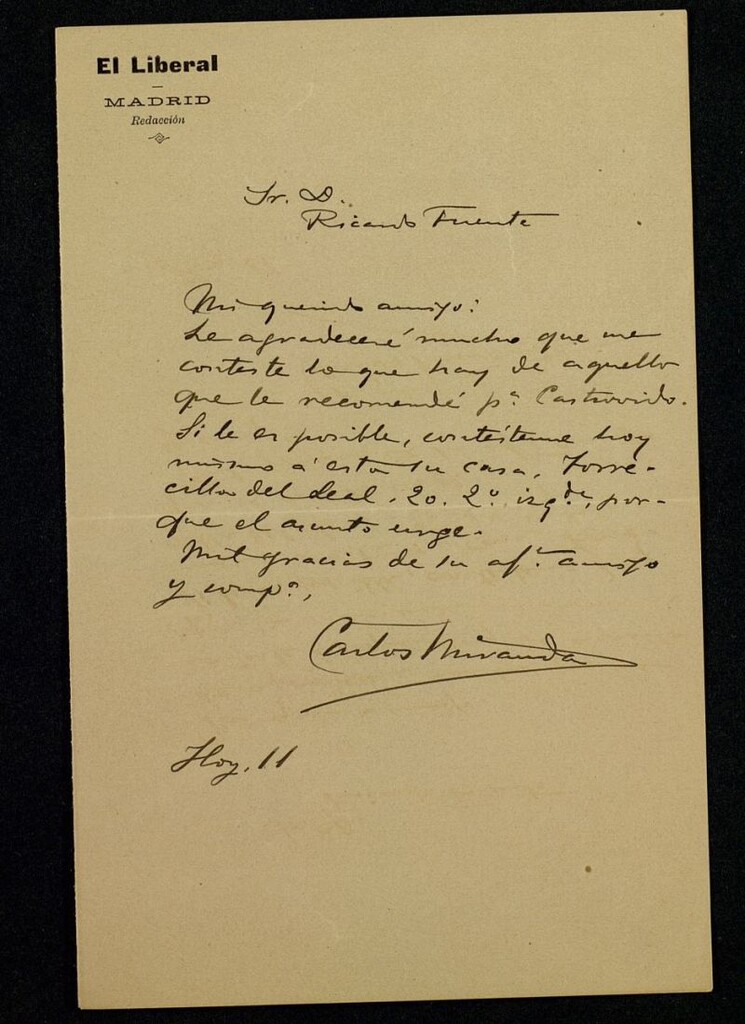 El Liberal
MADRID
Redacción
Sr. D.
Ricardo Fuente
Mi querido amigo:
Le agradeceré mucho que me
conteste lo que hay de aquello
que le recomendé pª Castrovido.
Si le es posible, contésteme hoy
mismo á esta su casa, Torre-
cilla del Leal. 20. 2º izqda, por-
que el asunto urge.
Mil gracias de su afmo. amigo
y compº,
Carlos Miranda
Hoy, 11